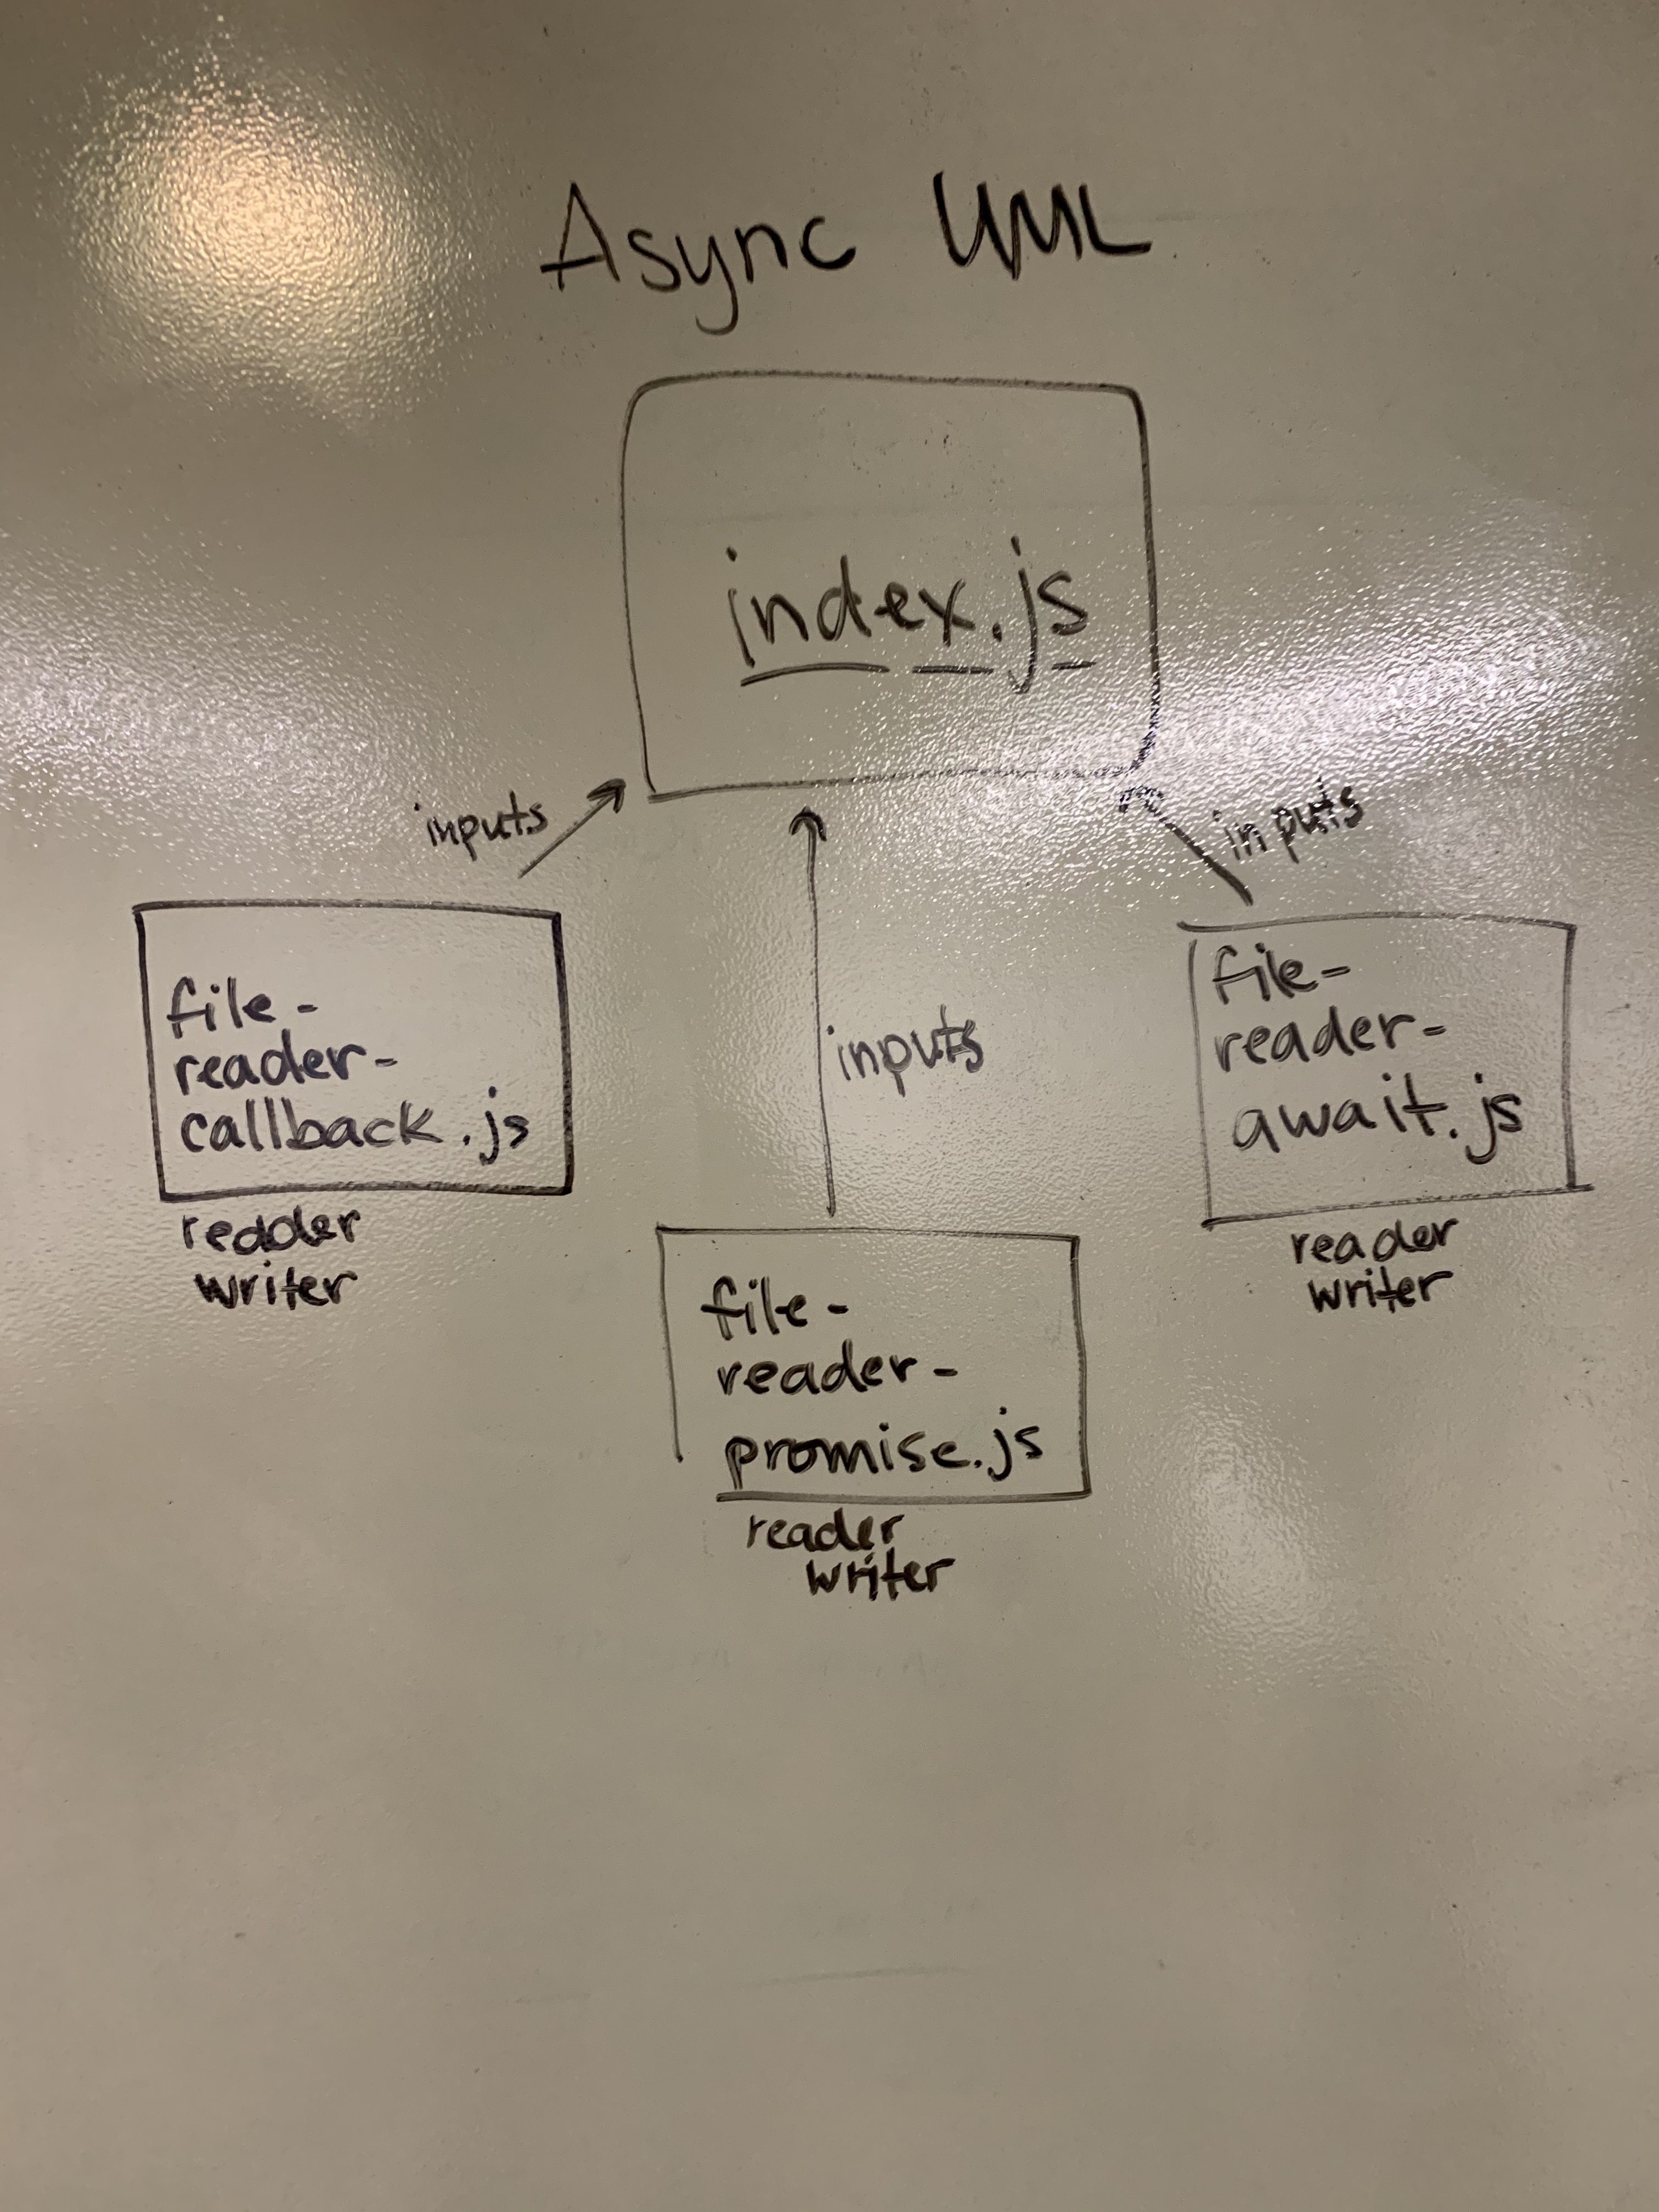 Async UML
index.js
inputs
inputs
inputs
file-
reader-
callback.js
reader
writer
file-
reader-
promise.js
reader
writer
file-
reader-
await.js
reader
writer